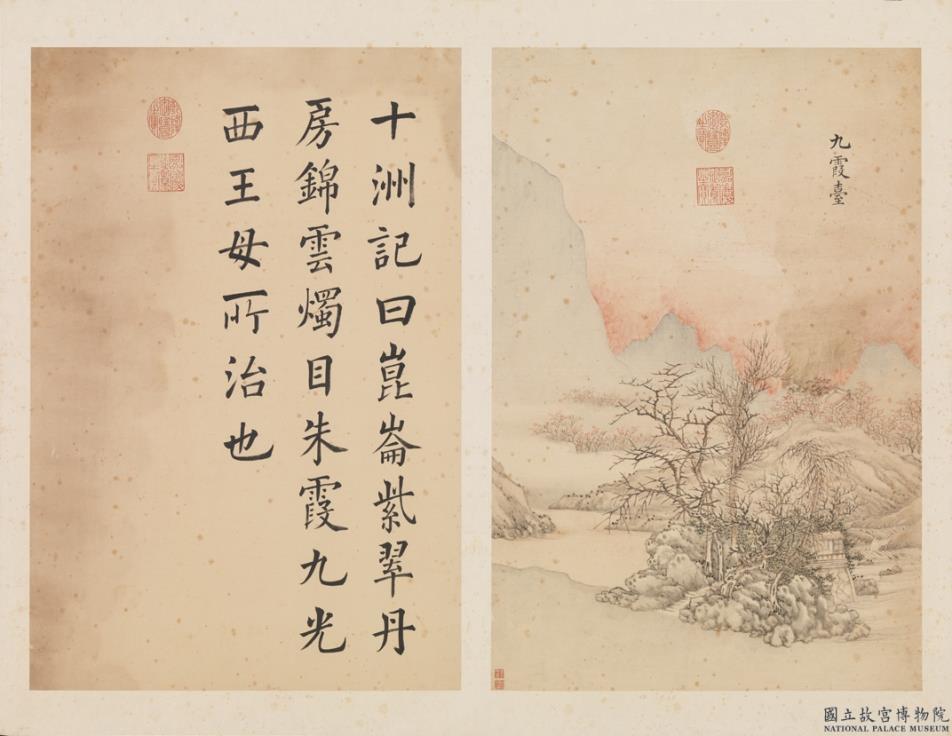 十洲記曰崑崙紫翠丹
房錦雲燭日朱霞九光
西王母所治也
九霞臺
國立故宮博物院
NATIONAL PALACE MUSEUM